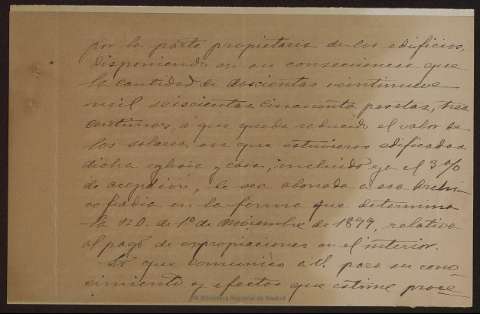 por la parte propietaria de los edificios,
disponiendo en su consecuencia que
la cantidad de doscientas veintinueve
mil seiscientas cincuenta pesetas, tres
centimos, a que queda reducido el valor de
los solares, en que estuvieron edificadas
dicha iglesia y casa, incluido ya el 3 %
de afección, le sea abonada a esa Archi-
cofradia en la forma que determina
la R.O. de 1º de Noviembre de 1899, relativa
al pago de expropiaciones en el interior.
Lo que comunico a V. para su cono-
cimiento y efectos que estime proce
Biblioteca Regional de Madrid